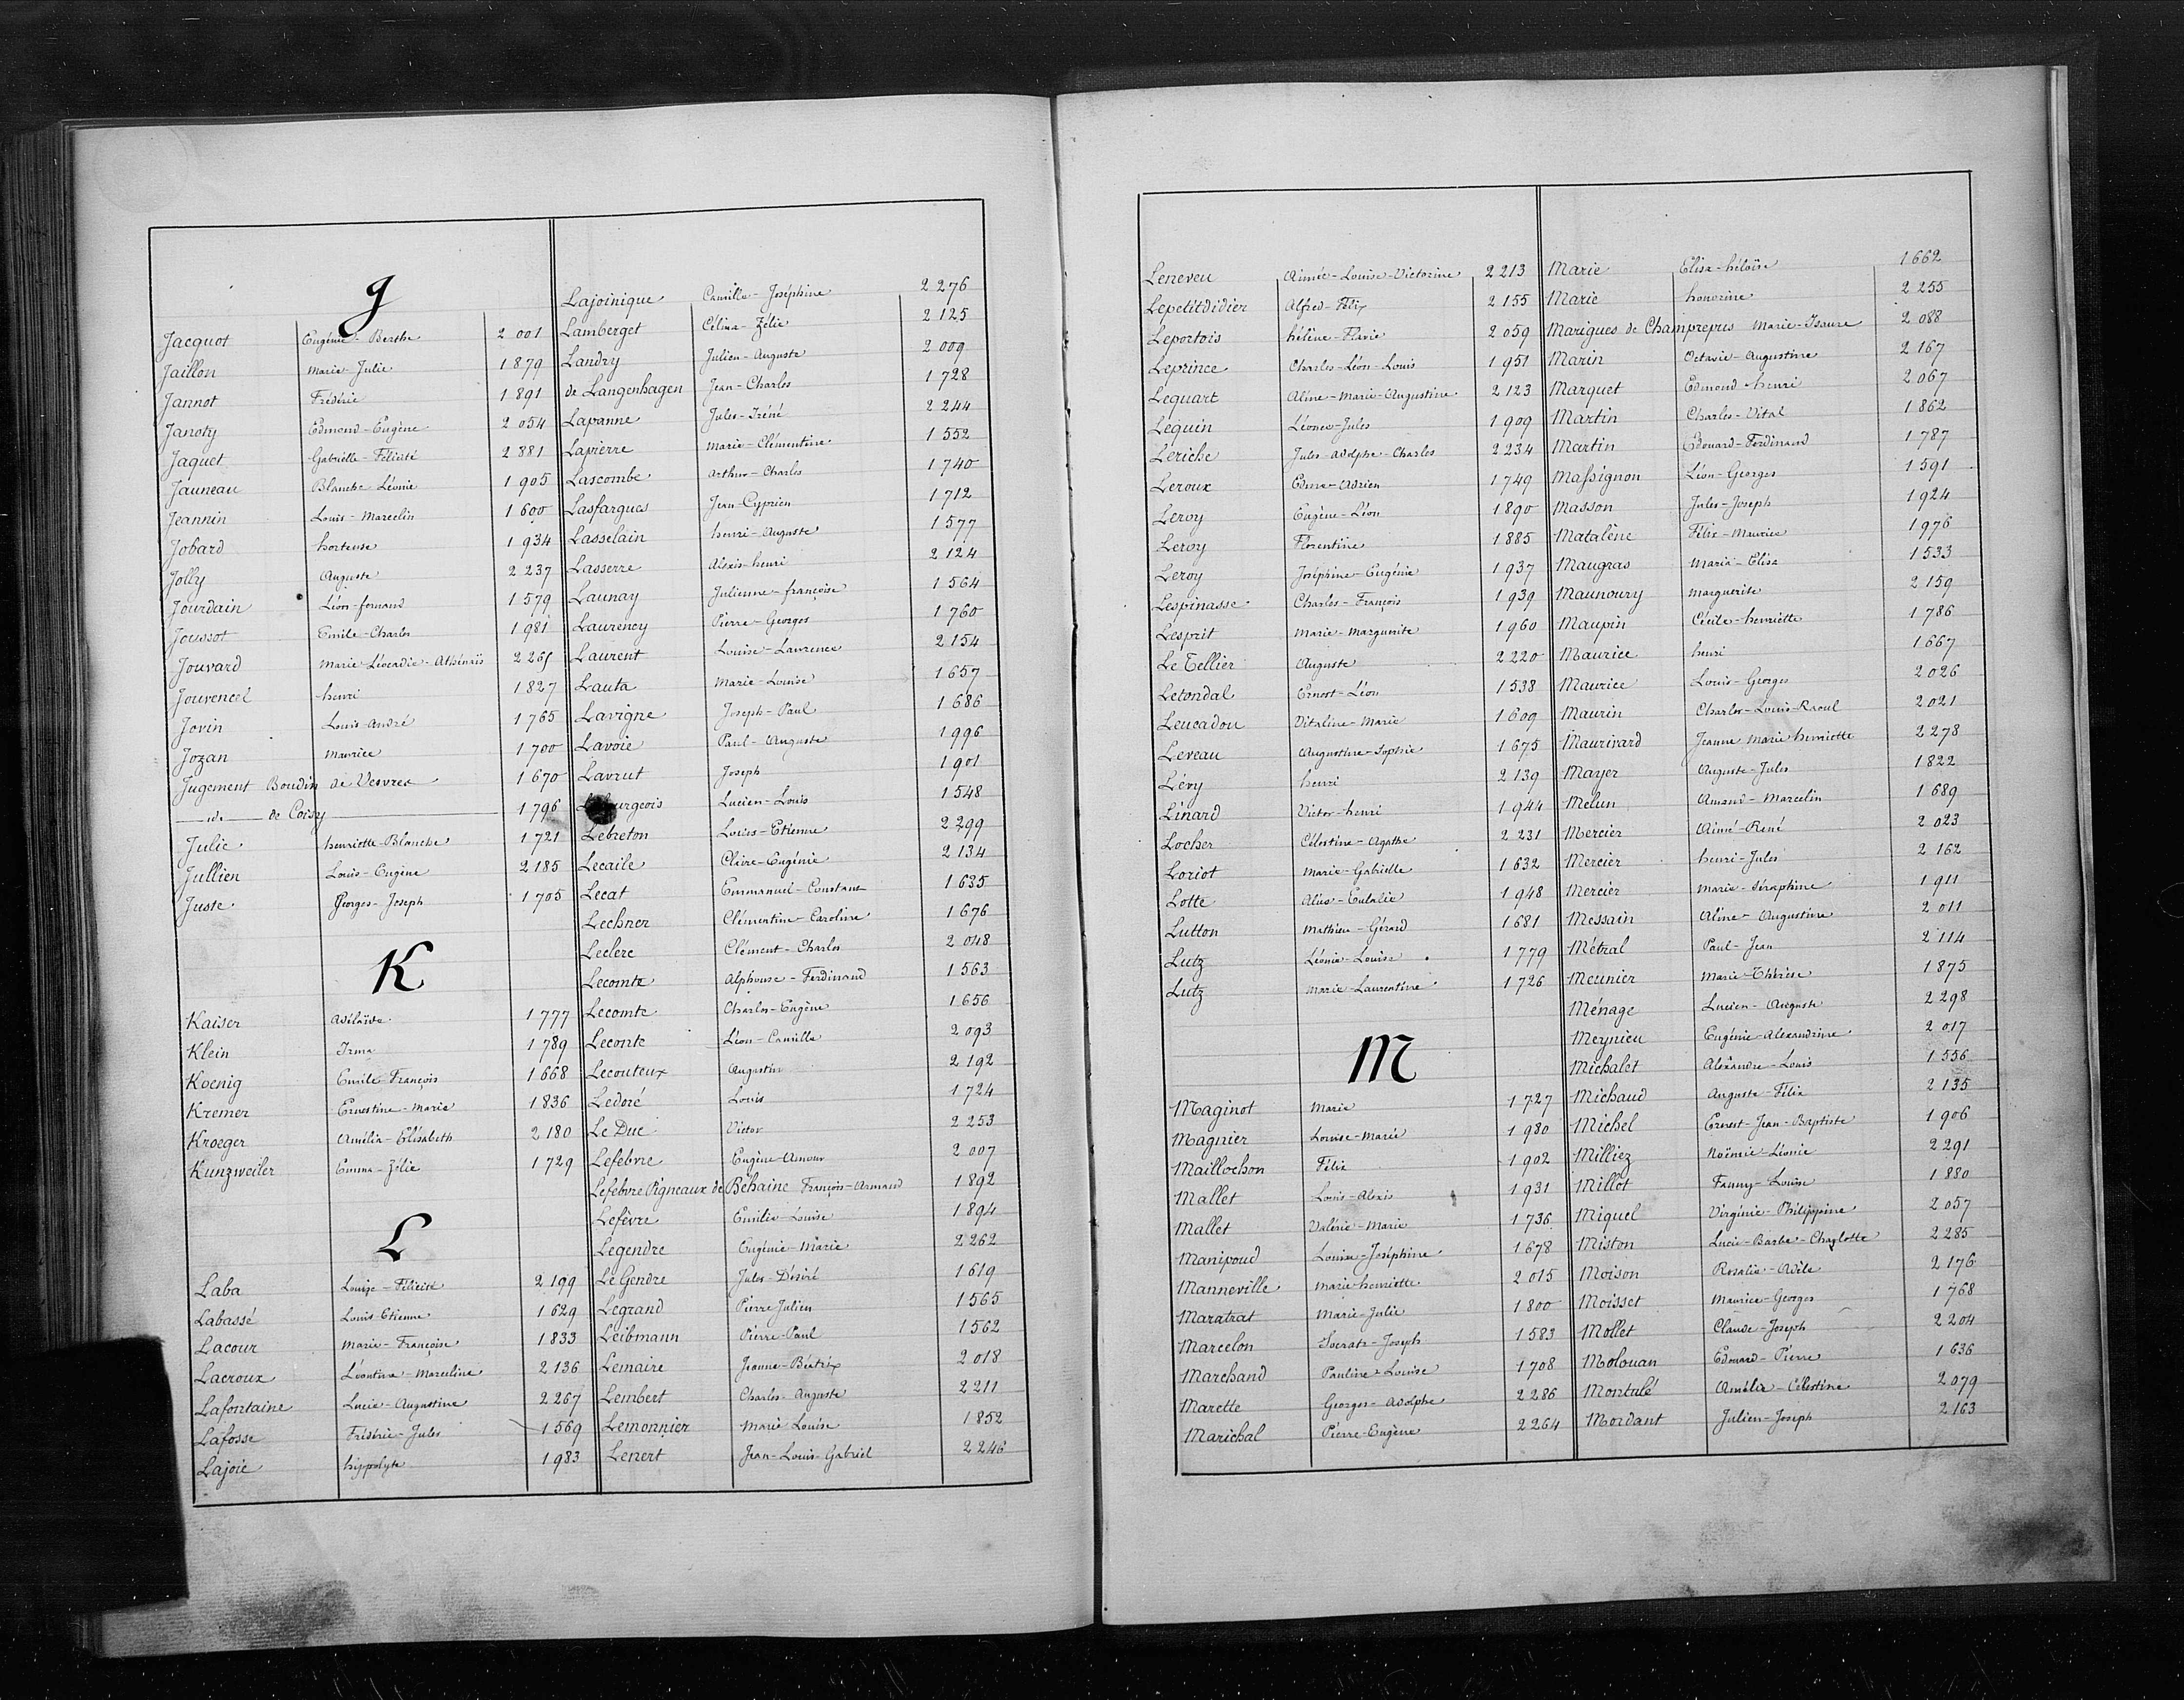 J
Jacquot Eugénie-Berthe 2001
Jaillon Marie-Julie 1879
Jannot Frédéric 1891
Janoty Edmond-Eugène 2054
Jaquet Gabrielle-Félicité 2881
Jauneau Blanche-Léonie 1905
Jeannin Louis-Marcelin 1600
Jobard hortense 1934
Jolly Auguste 2237
Jourdain Léon-fernand 1579
Joussot Emile-Charles 1981
Jouvard Marie-Léocadie-Athénaïs 2261
Jouvencel henri 1827
Jovin Louis-André 1765
Jozan Maurice 1700
Jugement Boudin de Vesvres 1670
— id — de Coisy 1796
Julie henriette-Blanche 1721
Jullien Louis-Eugène 2185
Juste Georges-Joseph 1705
K
Kaiser Adélaïde 1777
Klein Irma 1789
Koenig Emile François 1668
Kremer Ernestine-Marie 1836
Kroeger Amélie-Elisabeth 2180
Kunzweiler Emma-Zélie 1729
L
Laba Louise-Félicité 2199
Labassé Louis Etienne 1629
Lacour Marie-Françoise 1833
Lacroux Léontine-Marceline 2136
Lafontaine Lucie-Augustine 2267
Lafosse Frédéric-Jules 1569
Lajoie hippolyte 1983
Lajoinique Camille-Joséphine 2276
Lamberget Célina-Zélie 2125
Landry Julien-Auguste 2009
de Langenhagen Jean-Charles 1728
Lapanne Jules-Iréné 2244
Lapierre Marie-Clémentine 1552
Lascombe Arthur-Charles 1740
Lasfargues Jean-Cyprien 1712
Lasselain henri-Auguste 1577
Lasserre Alexis-henri 2124
Launay Julienne-françoise 1564
Laurency Pierre-Georges 1760
Laurent Louise-Laurence 2154
Lauta Marie-Louise 1657
Lavigne Joseph-Paul 1686
Lavoie Paul-Auguste 1996
Lavrut Joseph 1901
Lebourgeois Lucien-Louis 1548
Lebreton Louis-Etienne 2299
Lecaile Claire-Eugénie 2134
Lecat Emmanuel-Constant 1635
Lechner Clémentine-Caroline 1676
Leclerc Clément-Charles 2048
Lecomte Alphonse-Ferdinand 1563
Lecomte Charles-Eugène 1656
Leconte Léon-Camille 2093
Lecouteux Augustin 2192
Ledoré Louis 1724
Le Duc Victor 2253
Lefebvre Eugène-Amour 2007
Lefebvre Pigneaux de Béhaine François-Armand 1892
Lefèvre Emilie-Louise 1894
Legendre Eugénie-Marie 2262
Le Gendre Jules-Désiré 1619
Legrand Pierre Julien 1565
Leibmann Pierre-Paul 1562
Lemaire Jeanne-Béatrix 2018
Lembert Charles-Auguste 2211
Lemonnier Marie Louise 1852
Lenert Jean-Louis-Gabriel 2246
Leneveu Aimée-Louise-Victorine 2213
Lepetitdidier Alfred-Félix 2155
Leportois hélène-Flavie 2059
Leprince Charles-Léon-Louis 1951
Lequart Aline-Marie-Augustine 2123
Lequin Léonce-Jules 1909
Leriche Jules-Adolphe-Charles 2234
Leroux Edme-Adrien 1749
Leroy Eugène-Léon 1890
Leroy Florentine 1885
Leroy Joséphine-Eugénie 1937
Lespinasse Charles-François 1939
Lesprit Marie-Marguerite 1960
Le Tellier Auguste 2220
Letondal Ernest-Léon 1538
Leucadou Vitaline-Marie 1609
Leveau Augustine-Sophie 1675
Lévy henri 2139
Linard Victor-henri 1944
Locher Célestine-Agathe 2231
Loriot Marie-Gabrielle 1632
Lotte Aline-Eulalie 1948
Lutton Mathieu-Gérard 1681
Lutz Léonie-Louise 1779
Lutz Marie-Laurentine 1726
M
Maginot Marie 1727
Magnier Louise-Marie 1980
Maillochon Félix 1902
Mallet Louis-Alexis 1931
Mallet Valérie-Marie 1736
Manipoud Louise-Joséphine 1678
Manneville Marie henriette 2015
Maratrat Marie-Julie 1800
Marcelon Socrate-Joseph 1583
Marchand Pauline-Louise 1708
Marette Georges-Adolphe 2286
Marichal Pierre-Eugène 2264
Marie Elisa-héloïse 1662
Marie honorine 2255
Marigues de Champrepus Marie-Isaure 2088
Marin Octavie-Augustine 2167
Marquet Edmond henri 2067
Martin Charles-Vital 1862
Martin Edouard-Ferdinand 1787
Massignon Léon-Georges 1591
Masson Jules-Joseph 1924
Matalène Félix-Maurice 1976
Maugras Maria-Elisa 1533
Maunoury Marguerite 2159
Maupin Cécile-henriette 1786
Maurice henri 1667
Maurice Louis-Georges 2026
Maurin Charles-Louis-Raoul 2021
Maurivard Jeanne Marie henriette 2278
Mayer Auguste-Jules 1822
Melun Amand-Marcelin 1689
Mercier Aimé-René 2023
Mercier henri-Jules 2162
Mercier Marie-Séraphine 1911
Messain Aline-Augustine 2011
Métral Paul-Jean 2114
Meunier Marie-Thérèse 1875
Ménage Lucien-Auguste 2298
Meynieu Eugénie-Alexandrine 2017
Michalet Alexandre-Louis 1556
Michaud Auguste-Félix 2135
Michel Ernest-Jean-Baptiste 1906
Milliez Noémie-Léonie 2291
Millot Fanny-Louise 1880
Miquel Virginie-Philippine 2057
Miston Lucie-Barbe-Charlotte 2285
Moison Rosalie-Adèle 2176
Moisset Maurice-Georges 1768
Mollet Claude-Joseph 2204
Molouan Edouard-Pierre 1636
Montulé Amélie-Célestine 2079
Mordant Julien-Joseph 2163